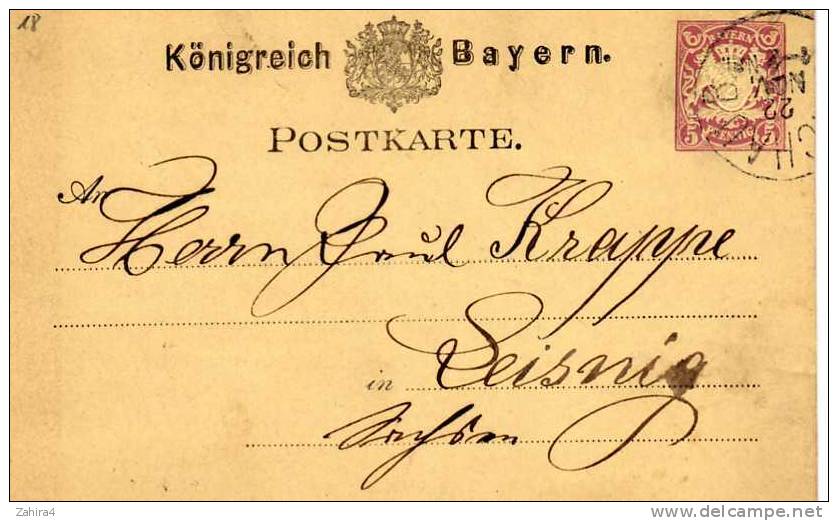 18
Königreich Bayern.
BAYERN
5 PFENNIG 5
22
NOV
POSTKARTE.
An
Herrn Paul Krappe
in Leisnig
Sachsen
Zahira4
www.delcampe.net